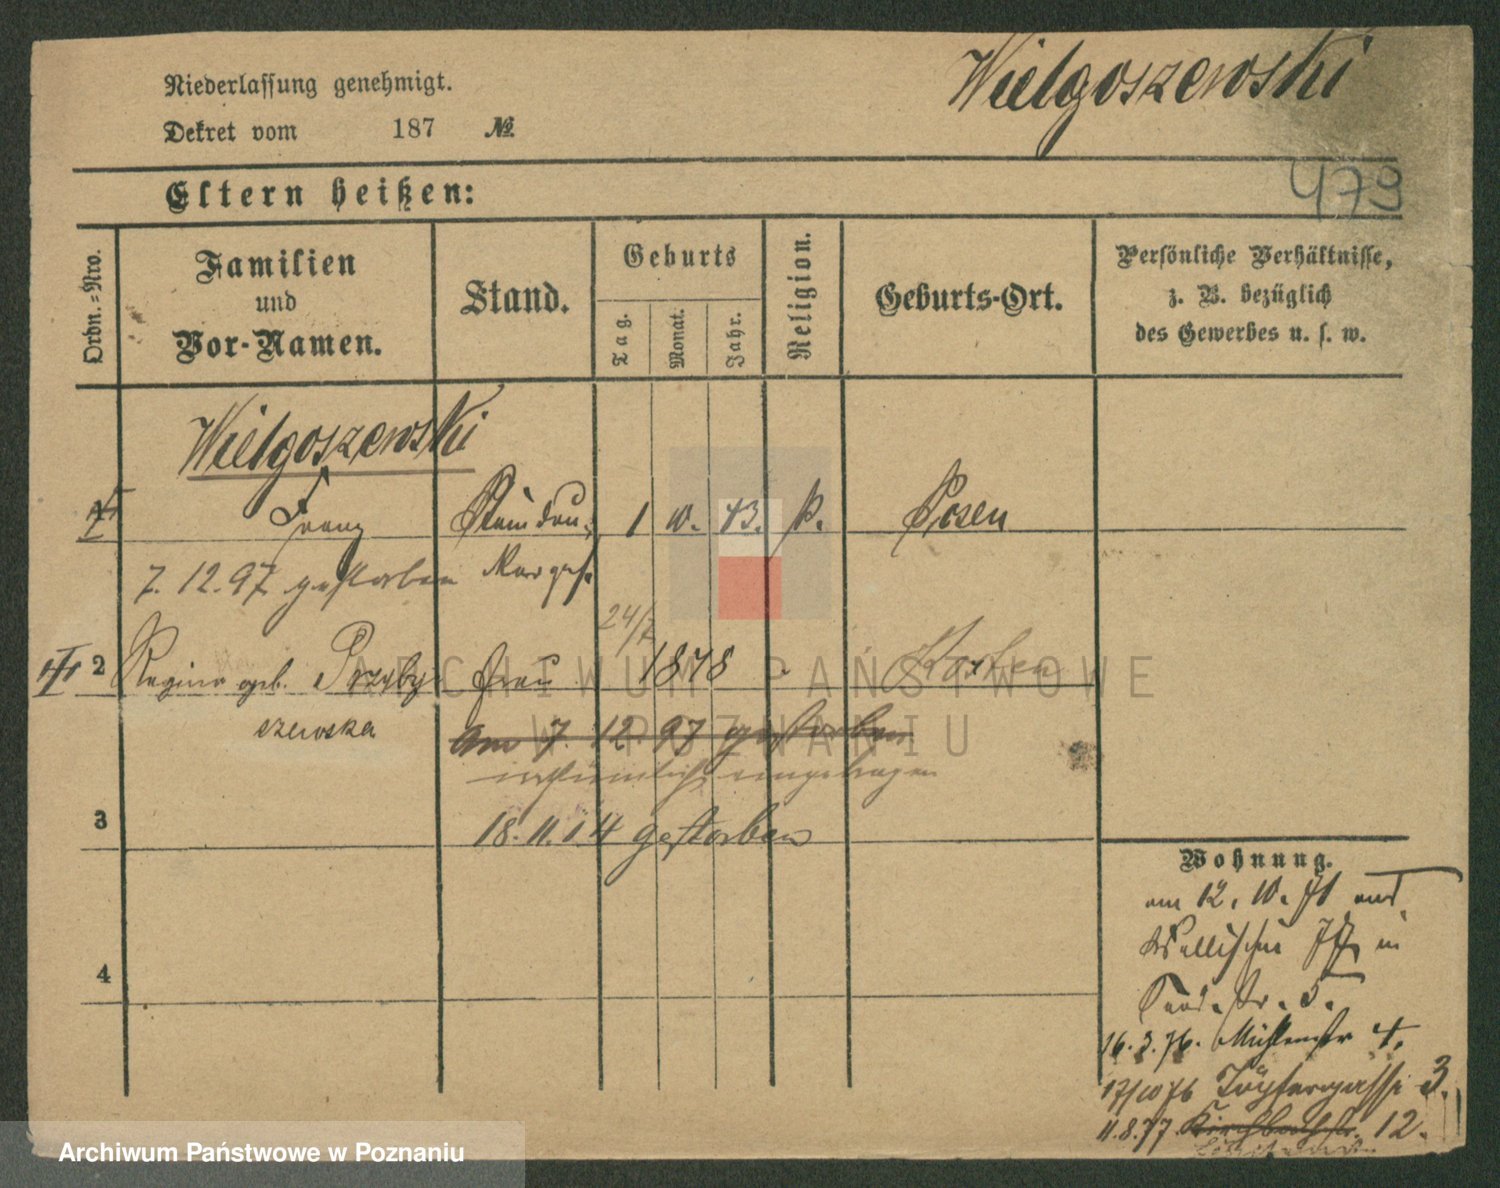 Wielgoszewski
Niederlassung genehmigt.
Dekret vom 187 №
479
Eltern heißen:
Ordn.-Nro.
Familien
und
Vor-Namen.
Stand.
Geburts
Tag.
Monat.
Jahr.
Religion.
Geburts-Ort.
Persönliche Verhältnisse,
z. B. bezüglich
des Gewerbes u. s. w.
Wielgoszewski
1 Franz 1 10. 43. k. Posen
7. 12. 97 gestorben
24/7
2 Regina geb. Przyby- Frau 1848 Kosten
szewska
am 7. 12. 97 gestorben
irrthümlich eingetragen
3 18. 11. 14 gestorben
4
Wohnung.
am 12. 10. 71 aus
Wallischei 77 in
str. 5.
16. 3. 76. Mühlenstr 4.
17/10 76 Töpfergasse 3.
11. 8. 77 Kirchbachstr. 12.
ARCHIWUM PAŃSTWOWE
W POZNANIU
Archiwum Państwowe w Poznaniu